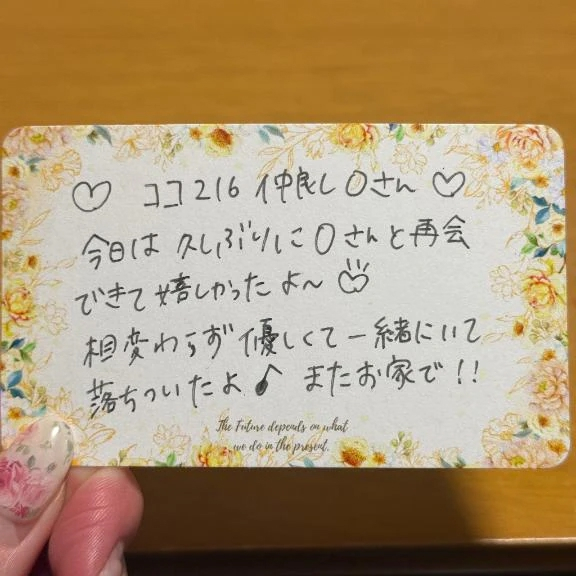 ♡ ココ216 仲良し Oさん ♡
今日は 久しぶりに Oさんと再会
できて嬉しかったよ〜
相変わらず優しくて一緒にいて
落ちついたよ♪ またお家で!!
The Future depends on what
we do in the present.